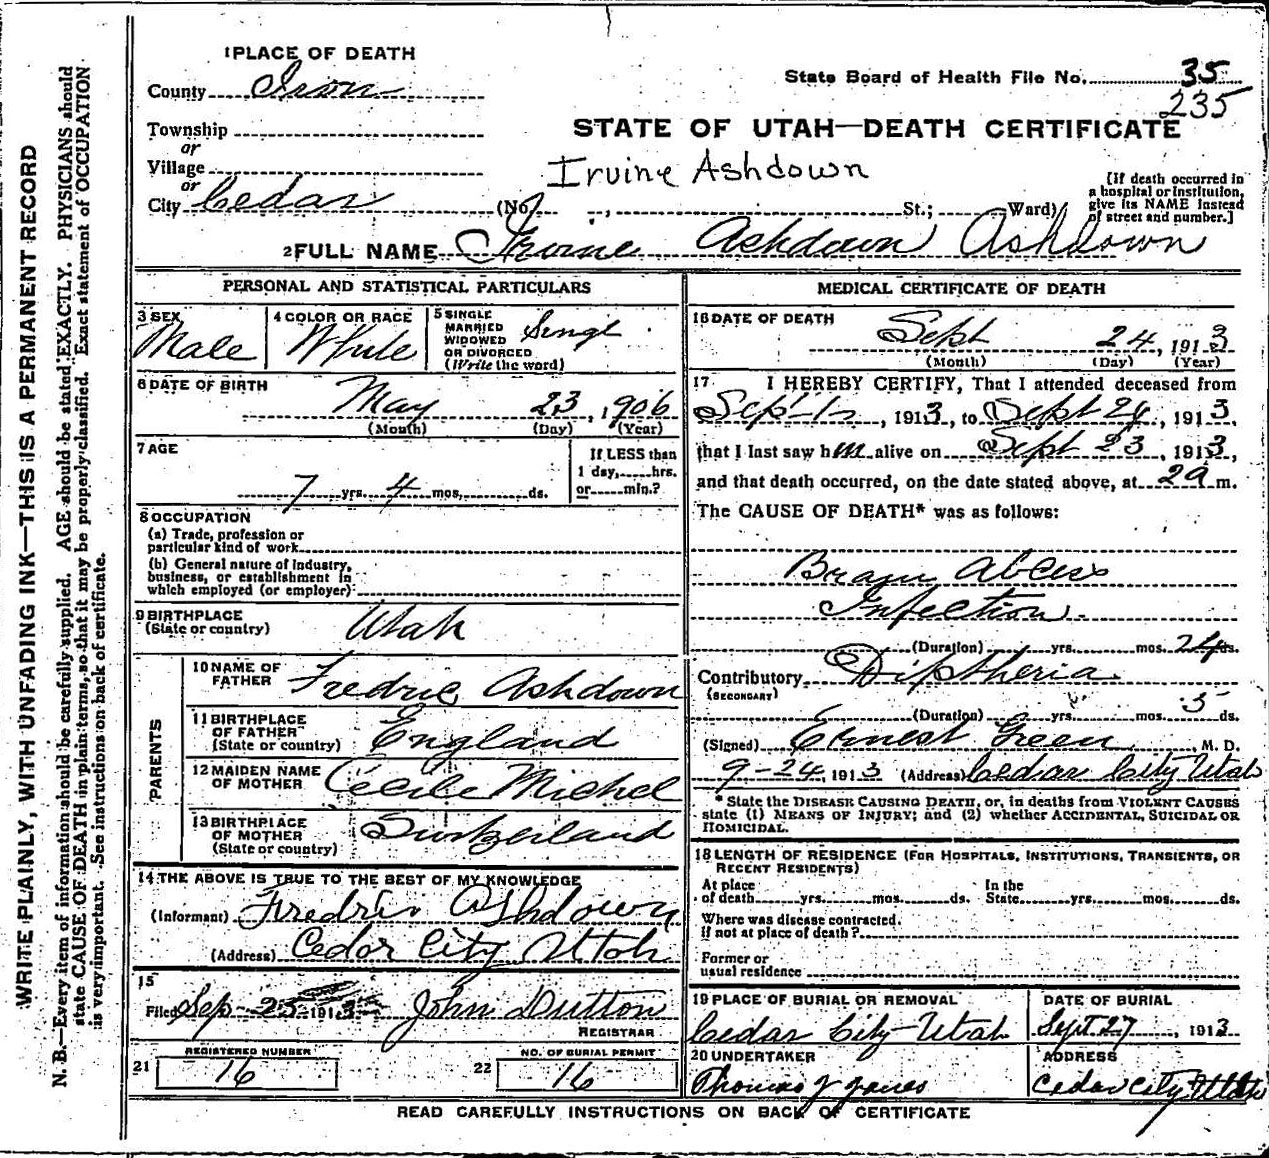 WRITE PLAINLY, WITH UNFADING INK—THIS IS A PERMANENT RECORD
N. B.—Every item of information should be carefully supplied. AGE should be stated EXACTLY. PHYSICIANS should
state CAUSE OF DEATH in plain terms, so that it may be properly classified. Exact statement of OCCUPATION
is very important. See instructions on back of certificate.
1 PLACE OF DEATH
County Iron
State Board of Health File No. 35
235
Township
or
STATE OF UTAH—DEATH CERTIFICATE
Village
or
Irvine Ashdown
City Cedar (No. , St.; Ward)
[If death occurred in
a hospital or institution,
give its NAME instead
of street and number.]
2 FULL NAME Irvine Ashdown Ashdown
PERSONAL AND STATISTICAL PARTICULARS
3 SEX
Male
4 COLOR OR RACE
White
5 SINGLE
MARRIED
WIDOWED
OR DIVORCED
(Write the word)
Singl
6 DATE OF BIRTH
May 23, 1906
(Month) (Day) (Year)
7 AGE
7 yrs. 4 mos. ds.
If LESS than
1 day, hrs.
or min.?
8 OCCUPATION
(a) Trade, profession or
particular kind of work
(b) General nature of industry,
business, or establishment in
which employed (or employer)
9 BIRTHPLACE
(State or country)
Utah
PARENTS
10 NAME OF
FATHER
Fredric Ashdown
11 BIRTHPLACE
OF FATHER
(State or country)
England
12 MAIDEN NAME
OF MOTHER
Cecile Michel
13 BIRTHPLACE
OF MOTHER
(State or country)
Switzerland
14 THE ABOVE IS TRUE TO THE BEST OF MY KNOWLEDGE
(Informant) Fredric Ashdown
(Address) Cedar City Utah
15
Filed Sep 25 191 John Dutton
REGISTRAR
21
REGISTERED NUMBER
16
22
NO. OF BURIAL PERMIT
16
MEDICAL CERTIFICATE OF DEATH
16 DATE OF DEATH
Sept 24, 1913
(Month) (Day) (Year)
17 I HEREBY CERTIFY, That I attended deceased from
Sept 1, 1913, to Sept 24, 1913,
that I last saw him alive on Sept 23, 1913,
and that death occurred, on the date stated above, at 2 a m.
The CAUSE OF DEATH* was as follows:
Brain Abcess
Infection
(Duration) yrs. mos. 24 ds.
Contributory Diptheria
(SECONDARY)
(Duration) yrs. mos. 5 ds.
(Signed) Ernest Green, M. D.
9-24, 1913 (Address) Cedar City Utah
* State the DISEASE CAUSING DEATH, or, in deaths from VIOLENT CAUSES
state (1) MEANS OF INJURY; and (2) whether ACCIDENTAL, SUICIDAL OR
HOMICIDAL.
18 LENGTH OF RESIDENCE (FOR HOSPITALS, INSTITUTIONS, TRANSIENTS, OR
RECENT RESIDENTS)
At place
of death yrs. mos. ds.
In the
State yrs. mos. ds.
Where was disease contracted,
if not at place of death?
Former or
usual residence
19 PLACE OF BURIAL OR REMOVAL
Cedar City Utah
DATE OF BURIAL
Sept 27, 1913
20 UNDERTAKER
Thomas J Jones
ADDRESS
Cedar City Utah
READ CAREFULLY INSTRUCTIONS ON BACK OF CERTIFICATE